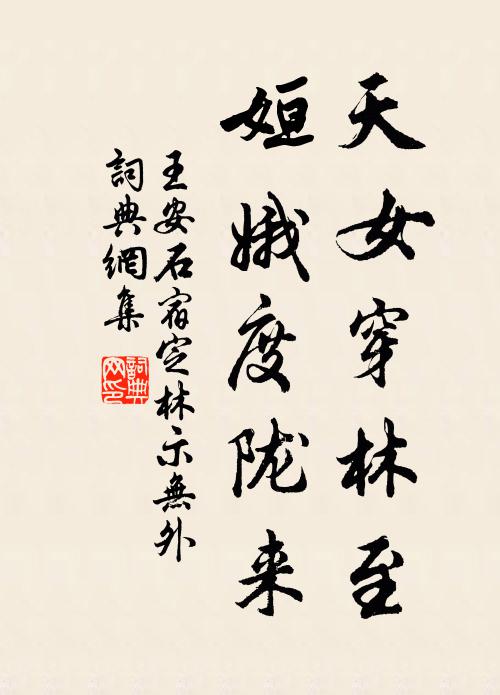 天女穿林至
姮娥度陇来
王安石宿定林示無外
詞典網集
詞典網印